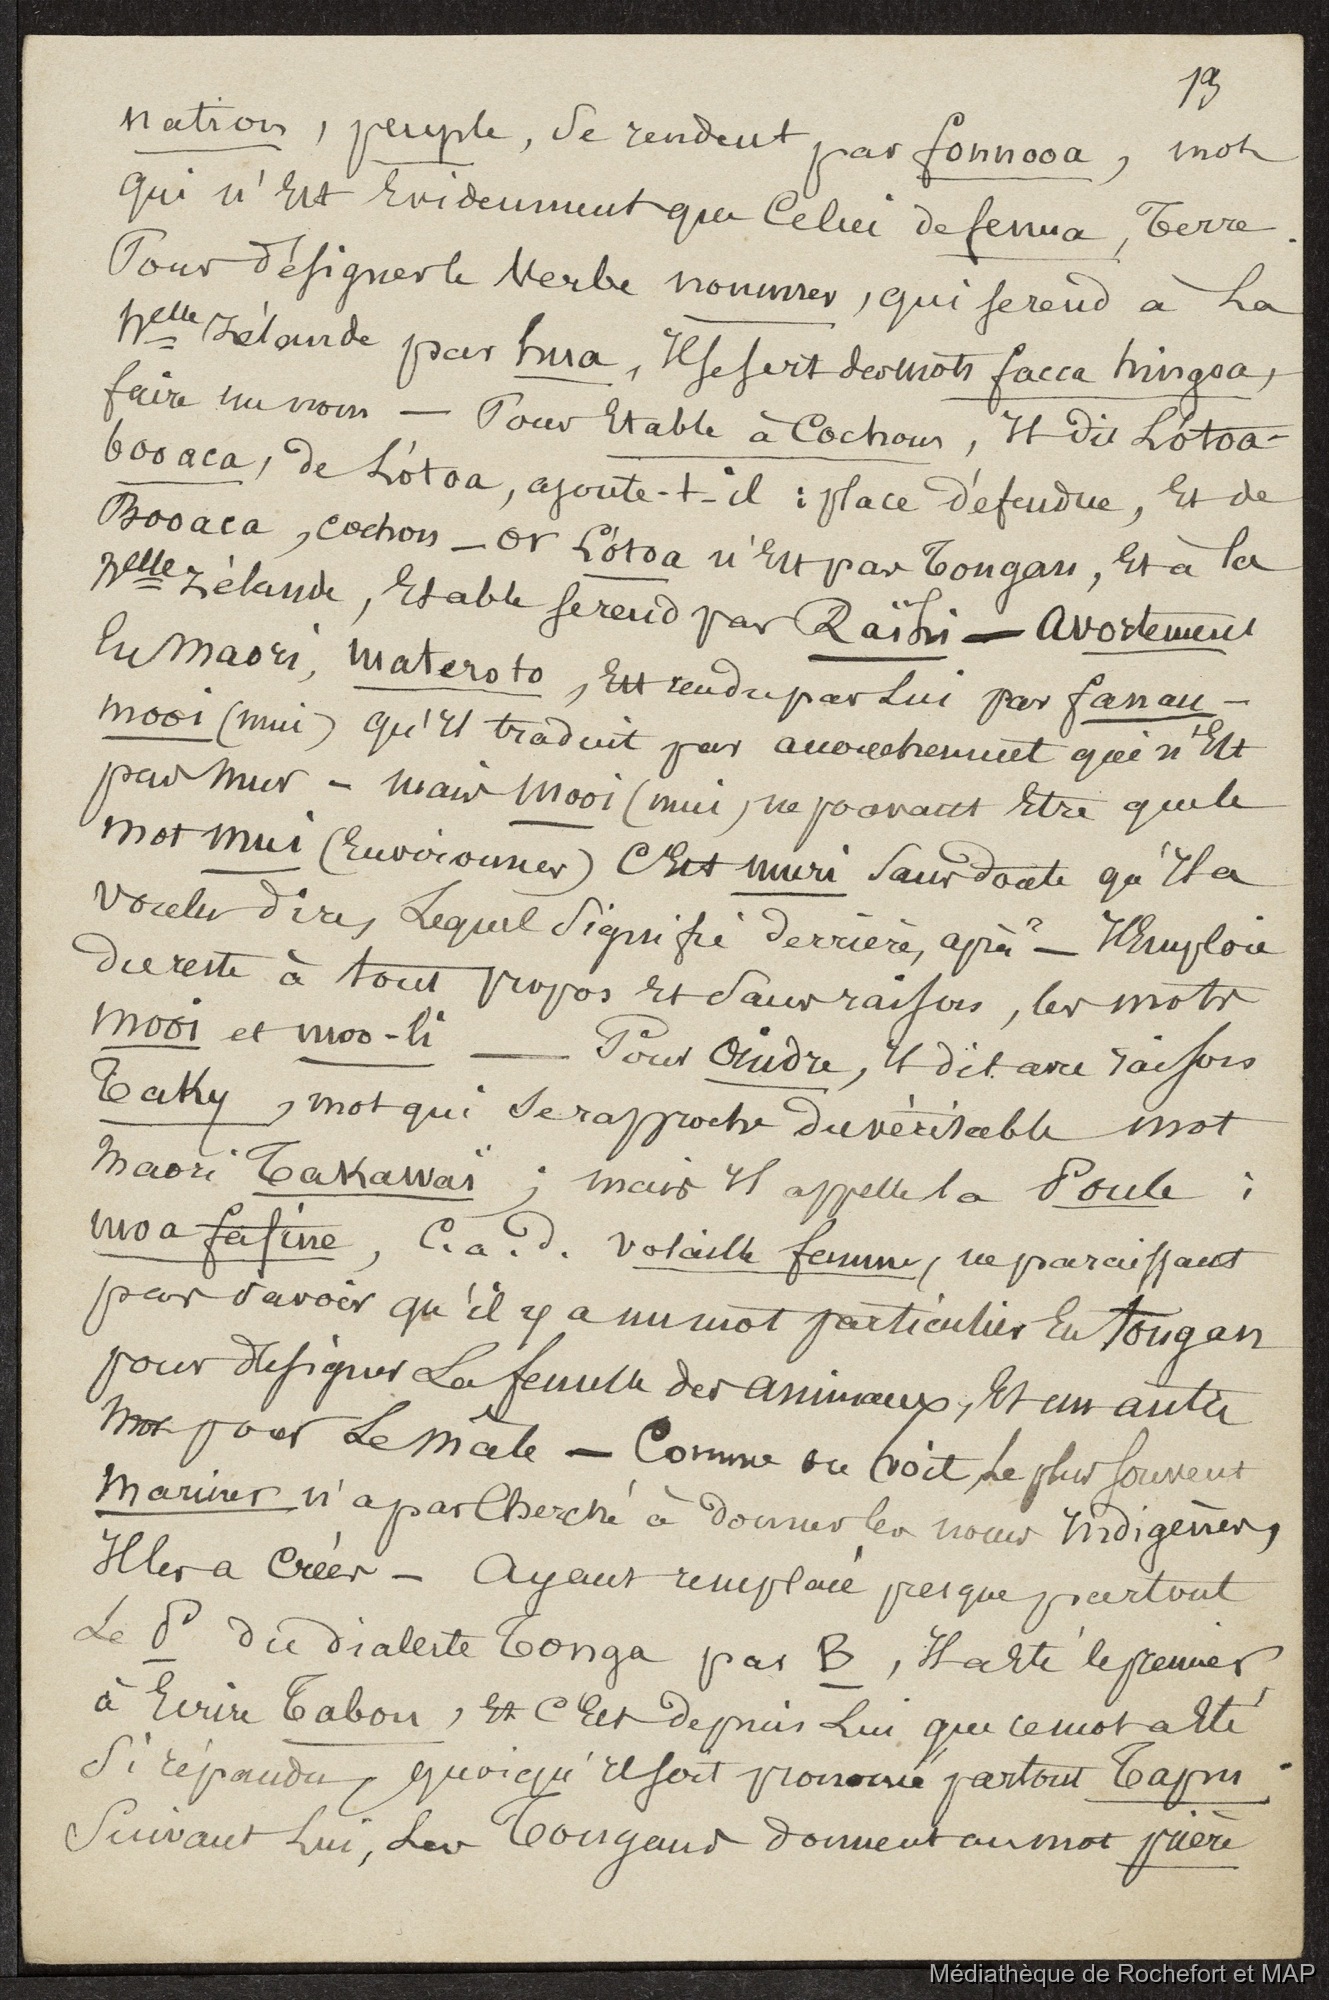 13
nation, peuple, se rendent par fonnooa, mot
qui n'Est Evidemment que Celui de fenua, Terre.
Pour désigner le Verbe nommer, qui se rend à La
Nelle Zélande par hua, Il se sert des mots facca hingoa,
faire un nom — Pour Etable à Cochons, Il dit Lótoa-
booaca, de Lótoa, ajoute-t-il : place défendue, Et de
Booaca, cochon — or Lótoa n'Est pas Tongan, Et à la
Nelle Zélande, Etable se rend par Raïhi — Avortement
En Maori, materoto, Est rendu par Lui par fanau-
mooi (mui) qu'Il traduit par accouchement qui n'Est
pas mur — mais mooi (mui) ne pouvant Etre que le
mot mui (Environner) C'Est muri sans doute qu'Il a
voulu dire, Lequel signifie derrière, après — Il Emploie
du reste à tout propos Et sans raison, les mots
mooi et moo-li — Pour Oindre, il dit avec raison
Taky, mot qui se rapproche du véritable mot
Maori Takawaï ; mais Il appelle la Poule :
moa fafine, C.a.d. volaille femme, ne paraissant
pas savoir qu'il y a un mot particulier En Tongan
pour désigner La femelle des animaux, Et un autre
mot pour Le Mâle — Comme on voit, Le plus souvent
Mariner n'a pas Cherché à donner les noms Indigènes,
Il les a Créés — Ayant remplacé presque partout
Le P du dialecte Tonga par B, Il a Eté le premier
à Ecrire Tabou, Et C'Est depuis Lui que ce mot a Eté
si répandu, quoiqu'Il soit prononcé partout Tapu.
Suivant Lui, Les Tongans donnent au mot prière
Médiathèque de Rochefort et MAP